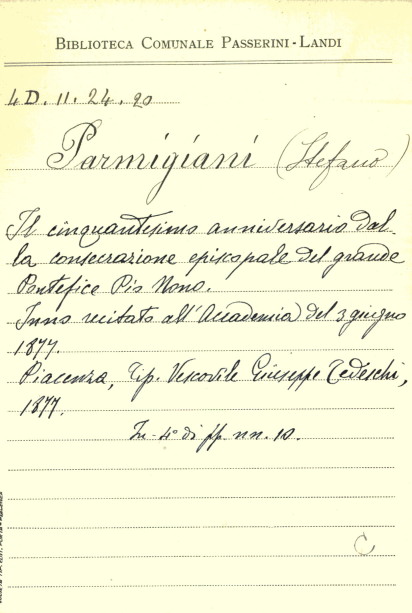 BIBLIOTECA COMUNALE PASSERINI-LANDI
4 D. 11. 24. 20
Parmigiani (Stefano)
Il cinquantesimo anniversario dal-
la consecrazione episcopale del grande
Pontefice Pio Nono.
Inno recitato all'Accademia del 3 giugno
1877.
Piacenza, Tip. Vescovile Giuseppe Tedeschi,
1877.
In-4° di pp. nn. 10.
C